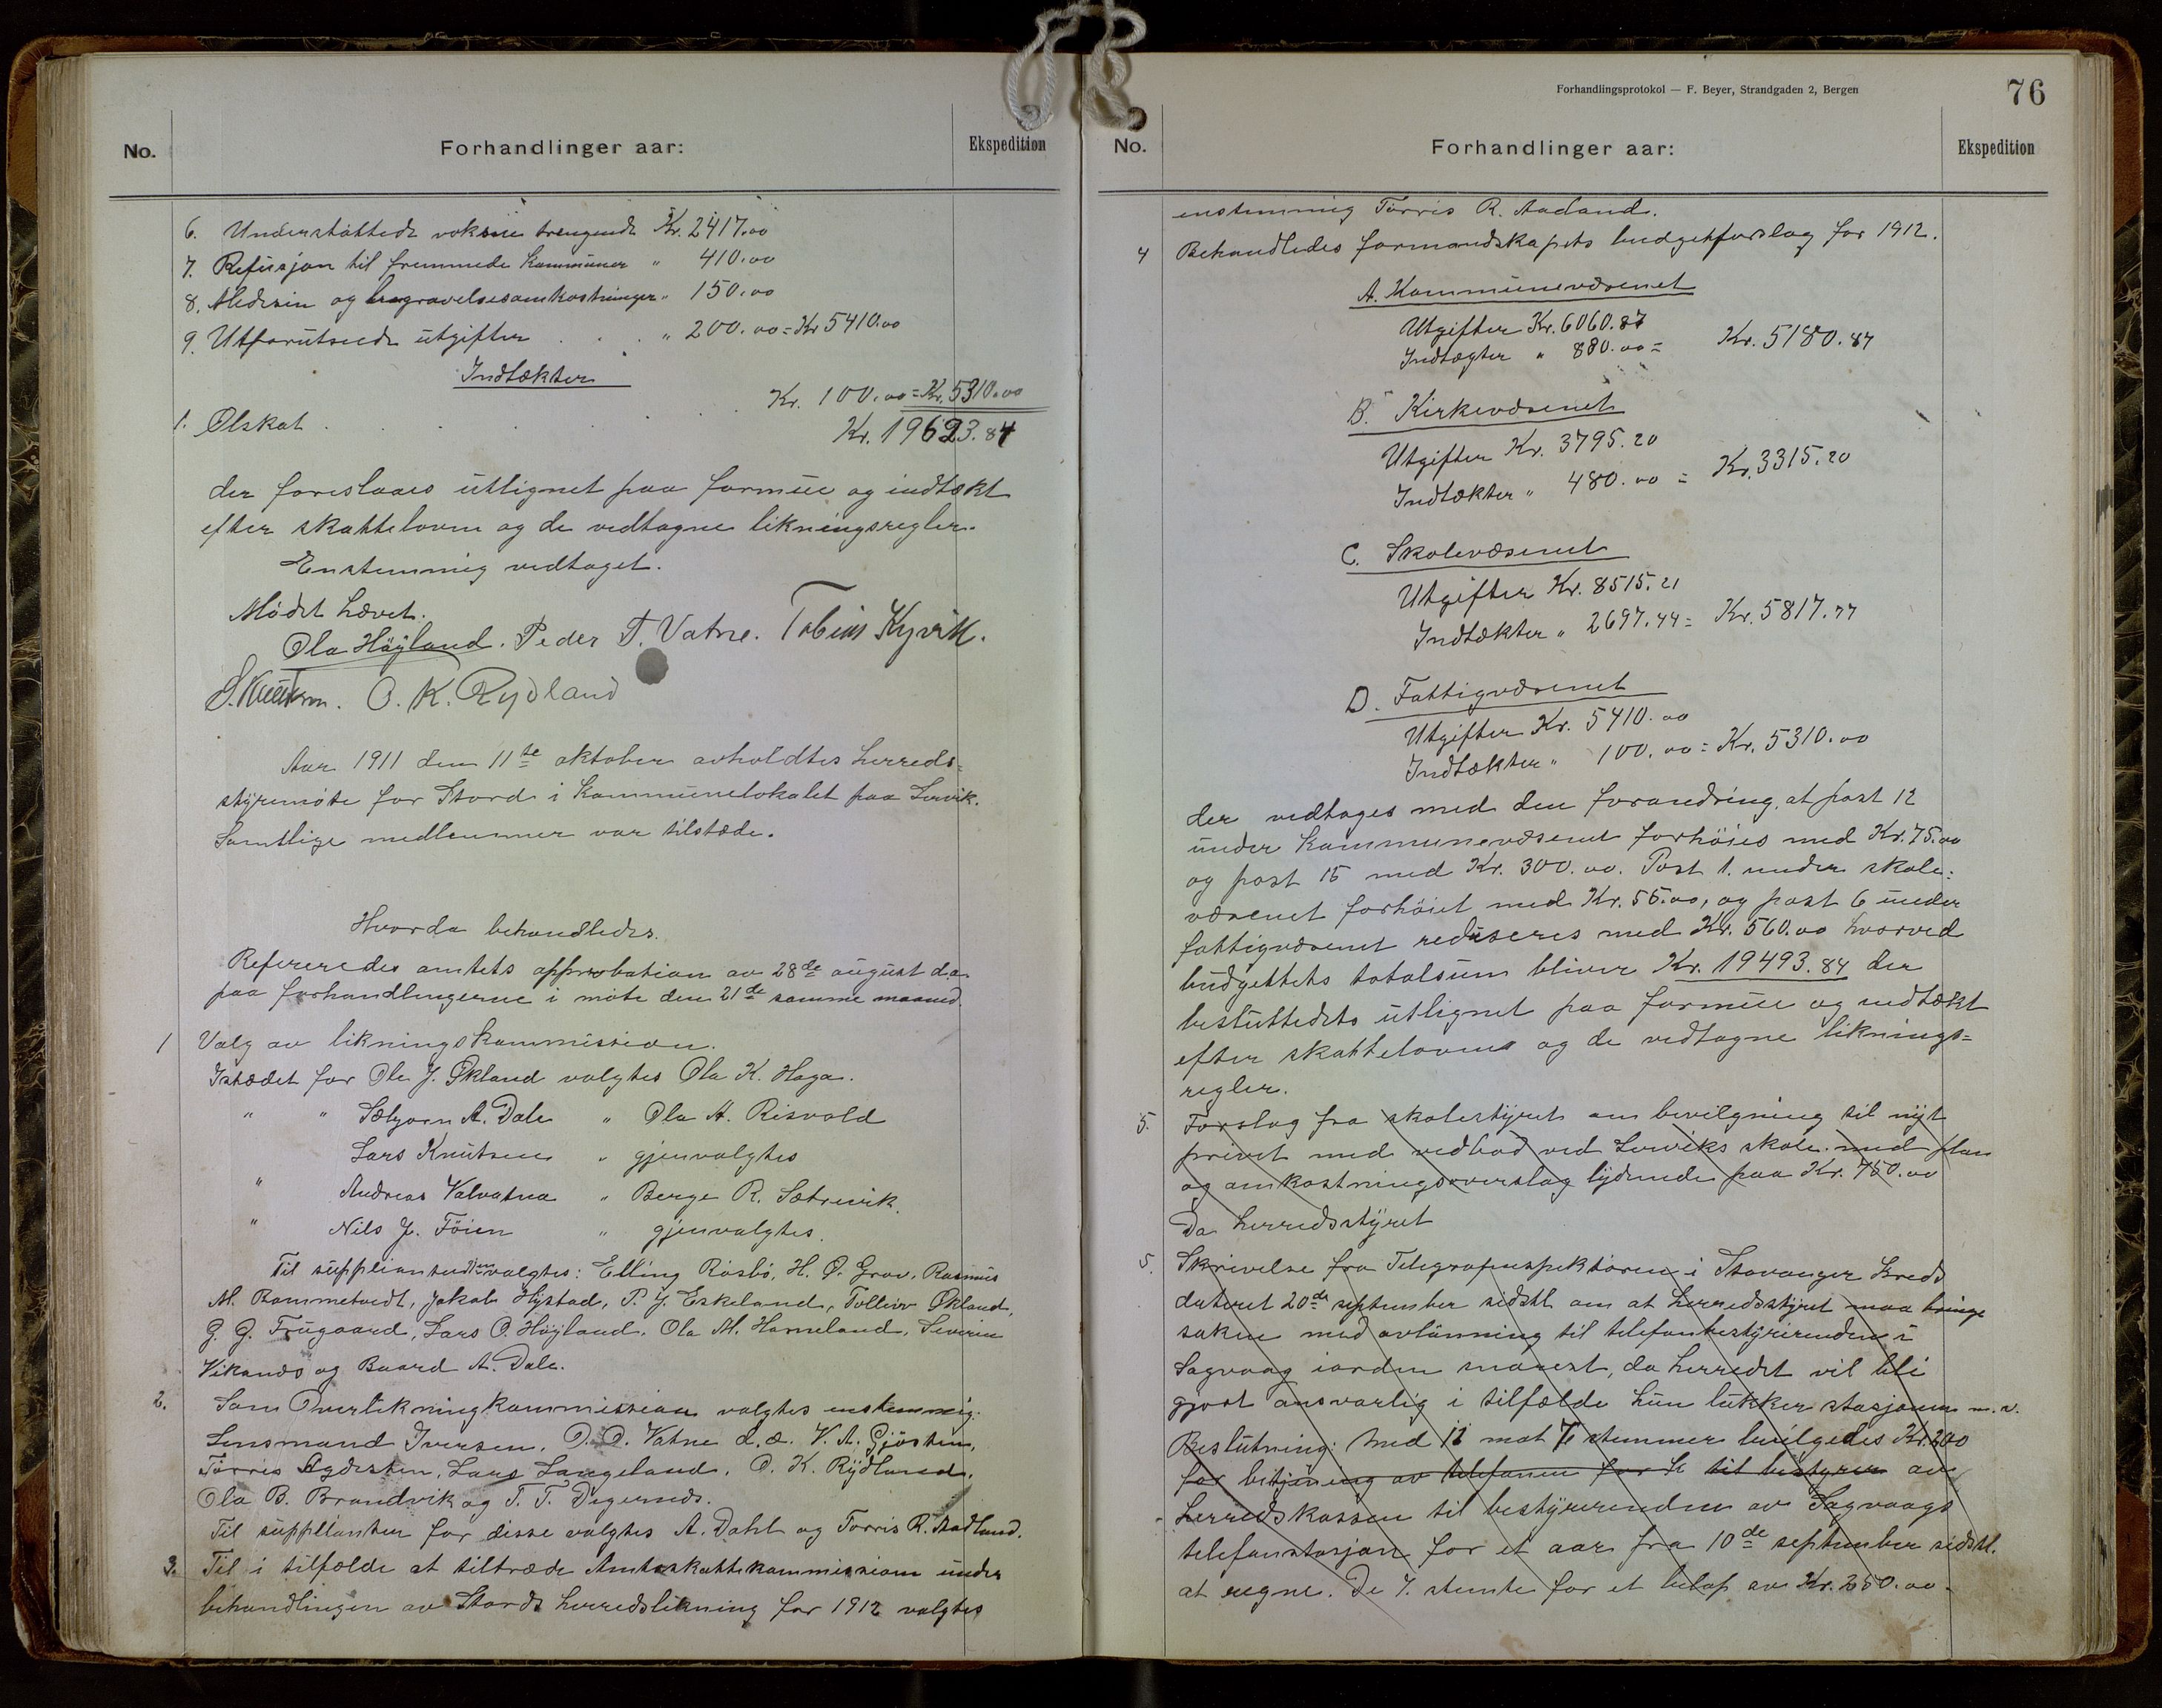 No.
Forhandlinger aar:
Ekspedition
6. Understøttede voksne trengende Kr. 2417.00
7. Refusjon til fremmede kommuner " 410.00
8. Medisin og begravelsesomkostninger " 150.00
9. Utforutseede utgifter . . . " 200.00 = Kr 5410.00
Indtækter
1. Ølskat . . . . . . Kr. 100.00 = Kr. 5310.00
Kr. 19623.84
der foreslaaes utlignet paa formue og indtækt
efter skatteloven og de vedtagne likningsregler.
Enstemmig vedtaget.
Mødet hævet.
Ola Høyland. Peder T. Vatne. Tobias Kyvik.
O. K. Rydland
Aar 1911 den 11te oktober avholdtes herreds=
styremøte for Stord i kommunelokalet paa Lervik.
Samtlige medlemmer var tilstæde.
Hvorda behandledes.
Refereredes amtets approbation av 28de august d.a.
paa forhandlingerne i møte den 21de samme maaned.
1 Valg av likningskommission.
Istædet for Ole J. Økland valgtes Ola K. Haga.
" " Sæbjørn A. Dale " Ola A. Risvold
Lars Knutsen " gjenvalgtes
" Andreas Valvatna " Berge R. Sætrevik.
" Nils J. Føien " gjenvalgtes.
Til suppleanter valgtes: Elling Rosbø, H. O. Grov, Rasmus
M. Rommetvedt, Jakob Hystad, P. J. Eskeland, Tolleiv Økland,
G. G. Frugaard, Lars O. Høyland, Ola M. Horneland, Severin
Vikanes og Baard A. Dale.
2. Som Overlikningkommission valgtes enstemmig:
Lensmand Iversen, O. O. Vatne d.æ. V. A. Gjøsten,
Tørris Agdesten, Lars Langeland, O. K. Rydland,
Ola B. Brandvik og T. T. Digernes.
Til supplianter for disse valgtes A. Dahl og Torris R. Aadland.
3. Til i tilfælde at tiltræde Amtsskattekommissionen under
behandlingen av Stords herredslikning for 1912 valgtes
Forhandlingsprotokol — F. Beyer, Strandgaden 2, Bergen
76
No.
Forhandlinger aar:
Ekspedition
enstemmig Tørris R. Aadland.
4 Behandledes formandskapets budgetforslag for 1912.
A. Kommunevæsenet
Utgifter Kr. 6060.87
Indtægter " 880.00 = Kr. 5180.87
B. Kirkevæsenet
Utgifter Kr. 3795.20
Indtækter " 480.00 = Kr. 3315.20
C. Skolevæsenet
Utgifter Kr. 8515.21
Indtækter " 2697.44 = Kr. 5817.77
D. Fattigvæsenet
Utgifter Kr. 5410.00
Indtækter " 100.00 = Kr. 5310.00
der vedtages med den forandring, at post 12
under kommunevæsenet forhøies med Kr. 75.00
og post 15 med Kr. 300.00. Post 1. under skole=
væsenet forhøiet med Kr. 55.00, og post 6 under
fattigvæsenet reduseres med Kr. 560.00 hvorved
budgettets totalsum bliver Kr. 19493.84 der
besluttedes utlignet paa formue og indtækt
efter skatteloven og de vedtagne liknings=
regler.
5. Forslag fra skolestyret om bevilgning til nyt
privet med vedbod ved Lerviks skole. med plan
og omkostningsoverslag lydende paa Kr. 750.00
Da herredsstyret
5. Skrivelse fra Telegrafinspektøren i Stavanger kreds
dateret 20de september sidstl. om at herredsstyret maa bringe
saken med avlønning til telefonbestyrerinden i
Sagvaag iorden snarest, da herredet vil bli
gjort ansvarlig i tilfælde hun lukker stasjonen m.v.
Beslutning: Med 11 mot 7 stemmer bevilgedes Kr. 200
for betjening av telefonen for h til bestyrer av
Herredskassen til bestyrerinden av Sagvaags
telefonstasjon for et aar fra 10de september sidstl.
at regne. De 7. stemte for et beløp av Kr. 250.00.